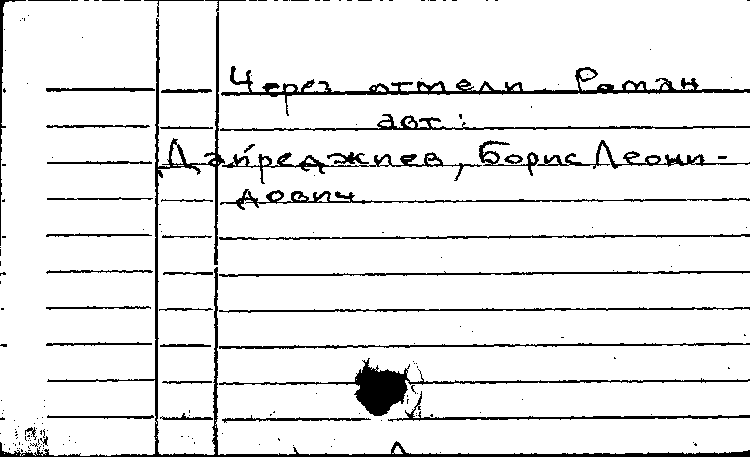 Через отмели. Роман
авт.:
Дайреджиев, Борис Леони-
дович.